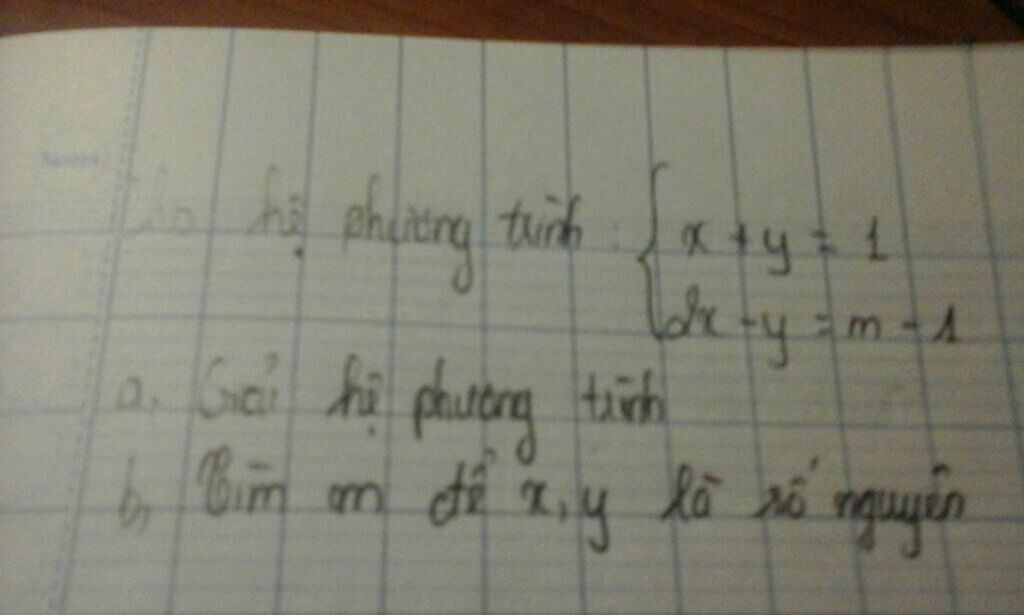 Cho hệ phương trình : { x + y = 1
2x - y = m - 1
a, Giải hệ phương trình
b, Tìm m để x, y là số nguyên